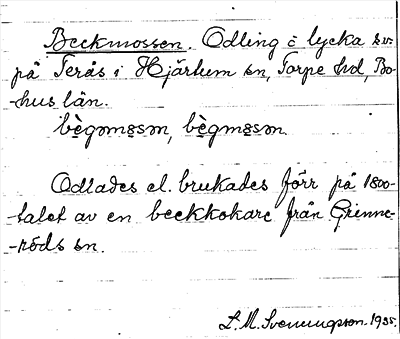 Beckmossen. Odling o lycka sv.
på Terås i Hjärtum sn, Torpe hd, Bo-
-hus län.
bègɘmåsɘn, bègmåsɘn.
Odlades el. brukades förr på 1800-
-talet av en beckkokare från Grinne-
-röds sn.
L. M. Svenungsson. 1935.